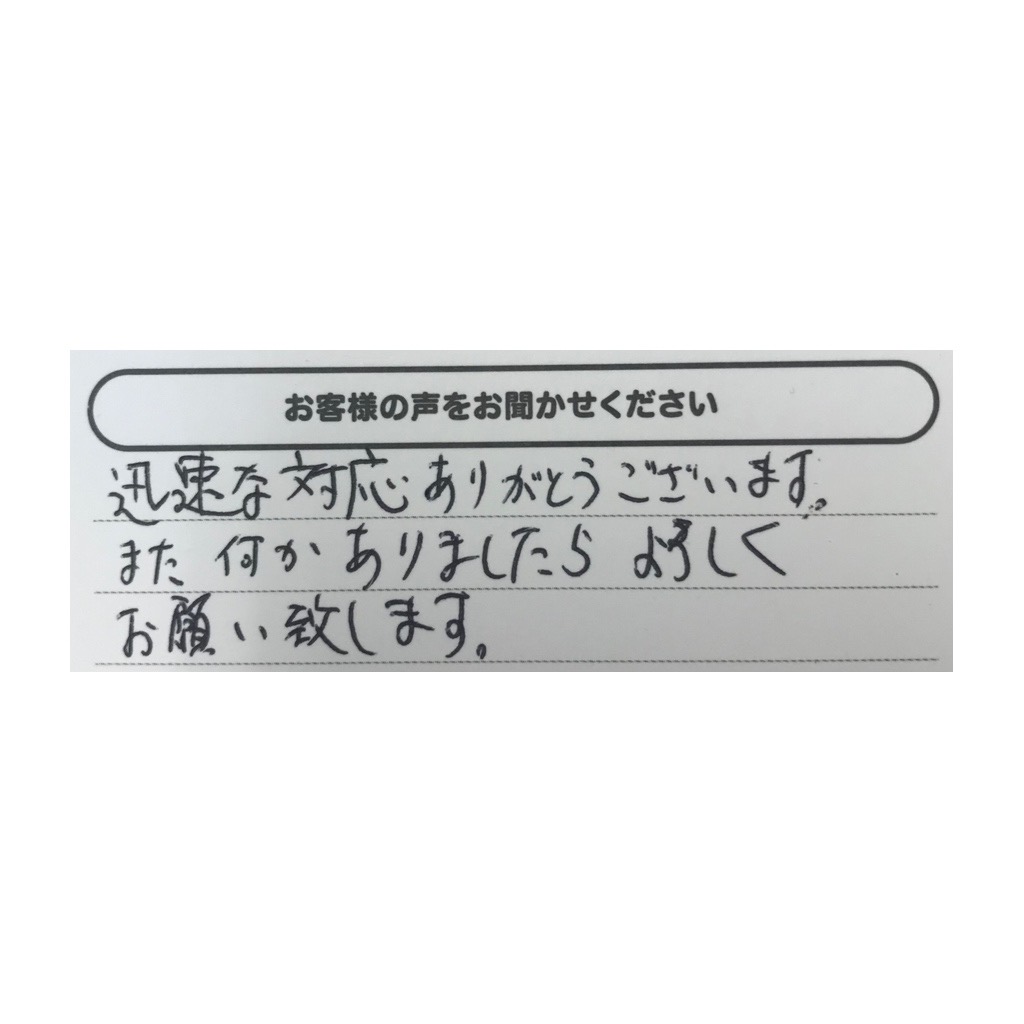 お客様の声をお聞かせください
迅速な対応ありがとうございます。
また何かありましたらよろしく
お願い致します。